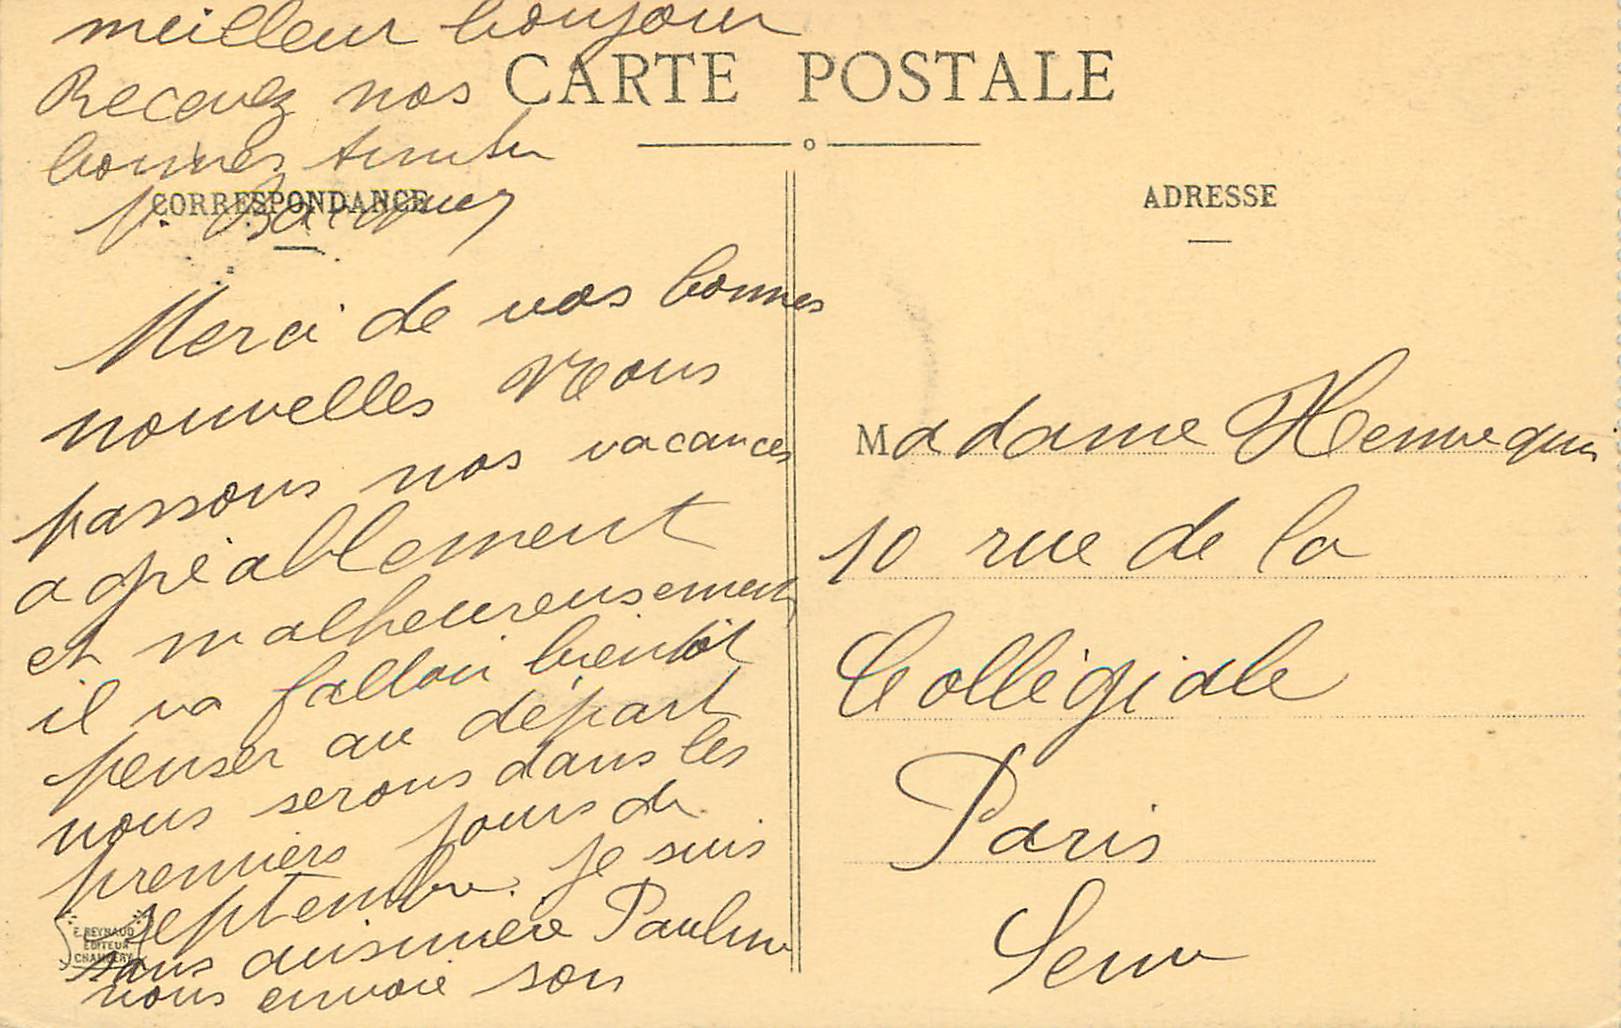 CARTE POSTALE
CORRESPONDANCE
ADRESSE
Merci de vos bonnes
nouvelles Nous
passons nos vacances
agréablement
et malheureusement
il va falloir bientôt
penser au départ
nous serons dans les
premiers jours de
septembre. je suis
sans cuisinière Pauline
nous envoie son
meilleur bonjour
Recevez nos
bonnes
P.
Madame Hennequin
10 rue de la
Collégiale
Paris
Seine
E. REYNAUD
EDITEUR
CHAMBERY